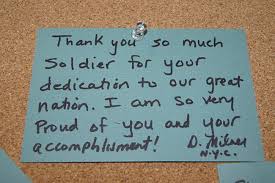 Thank you so much
Soldier for your
dedication to our great
nation. I am so very
Proud of you and your
accomplishment! D.
N.Y.C.